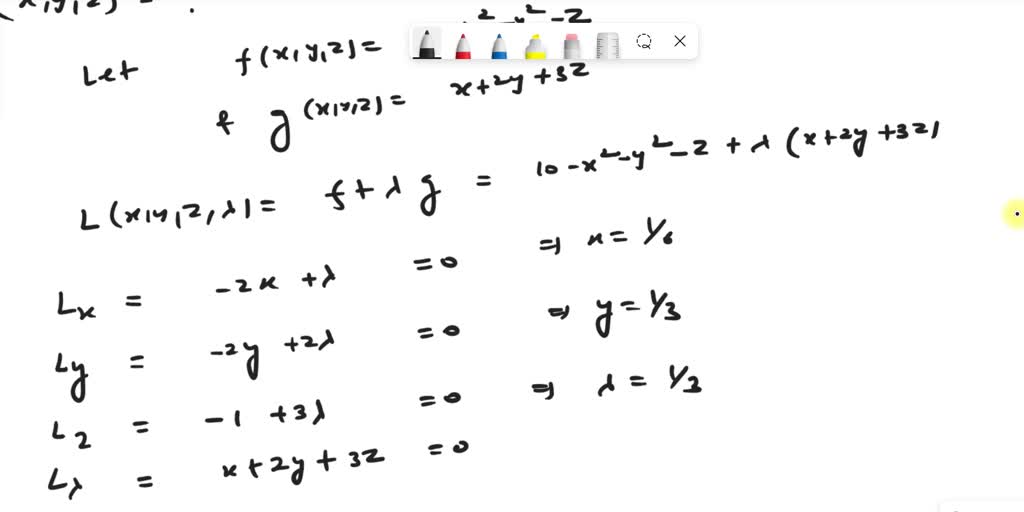 (x,y,z) = .
Let f(x,y,z) = 2 - y² - z
f g(x,y,z) = x+2y+3z
L(x,y,z,λ) = f+λg = 10-x²-y²-z+λ(x+2y+3z)
Lx = -2x+λ =0 ⇒ x=1/6
Ly = -2y+2λ =0 ⇒ y=1/3
Lz = -1+3λ =0 ⇒ λ=1/3
Lλ = x+2y+3z =0